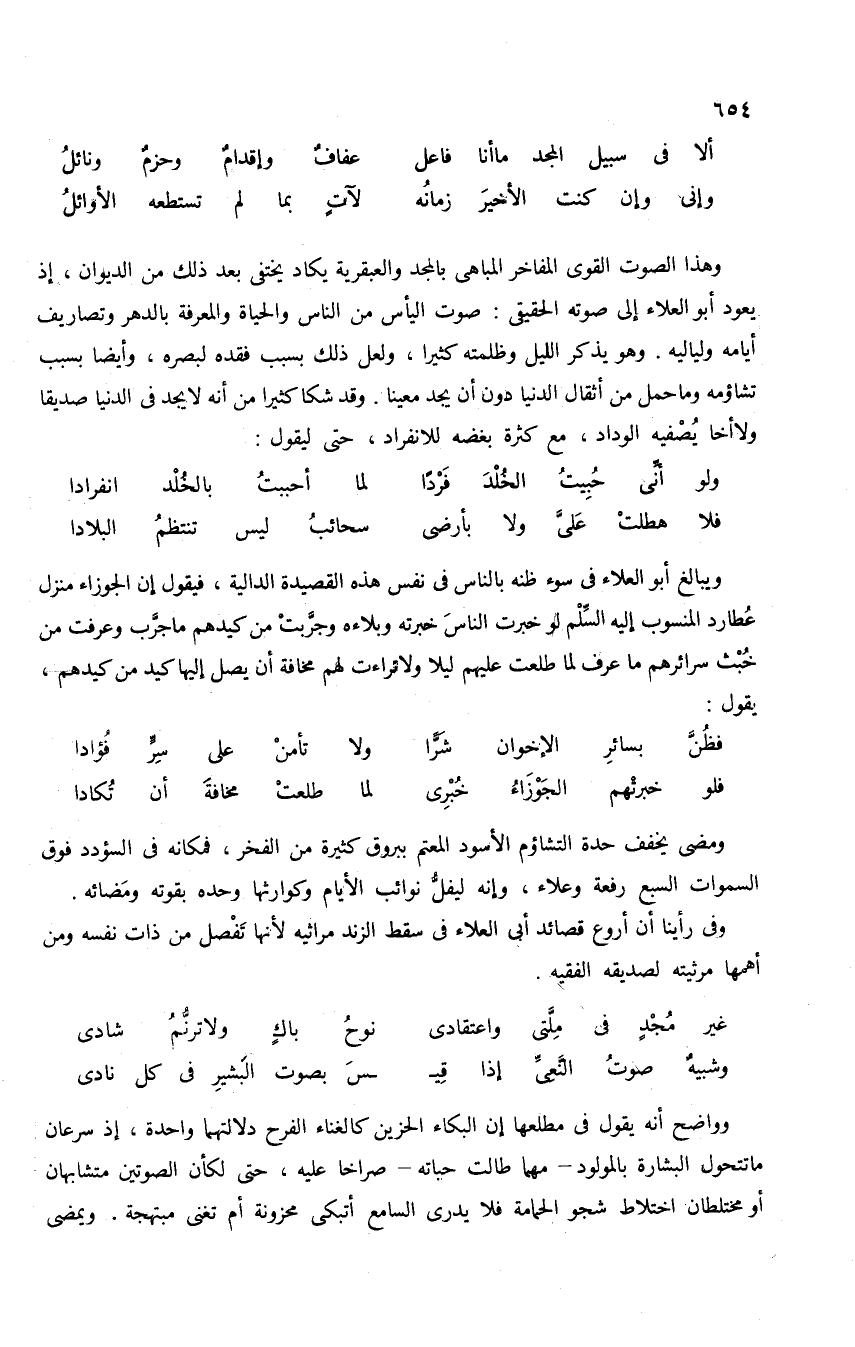 ٦٥٤
ألا فى سبيل المجد ماأنا فاعل عفافٌ وإقدامٌ وحزمٌ ونائلُ
وإنى وإن كنت الأخيرَ زمانُه لآتٍ بما لم تستطعه الأوائلُ
وهذا الصوت القوى المفاخر المباهى بالمجد والعبقرية يكاد يختفى بعد ذلك من الديوان ، إذ
يعود أبو العلاء إلى صوته الحقيقى : صوت اليأس من الناس والحياة والمعرفة بالدهر وتصاريف
أيامه ولياليه . وهو يذكر الليل وظلمته كثيرا ، ولعل ذلك بسبب فقده لبصره ، وأيضا بسبب
تشاؤمه وماحمل من أثقال الدنيا دون أن يجد معينا . وقد شكا كثيرا من أنه لايجد فى الدنيا صديقا
ولاأخا يُصْفيه الوداد ، مع كثرة بغضه للانفراد ، حتى ليقول :
ولو أنِّى حُبِيتُ الخُلْدَ فَرْدًا لما أحببتُ بالخُلْد انفرادا
فلا هطلتْ عَلىَّ ولا بأرضى سحائبُ ليس تنتظمُ البلادا
ويبالغ أبو العلاء فى سوء ظنه بالناس فى نفس هذه القصيدة الدالية ، فيقول إن الجوزاء منزل
عُطارد المنسوب إليه السِّلْم لو خبرت الناسَ خبرته وبلاءه وجرَّبتْ من كيدهم ماجرَّب وعرفت من
خُبْث سرائرهم ما عرف لما طلعت عليهم ليلا ولاتراءت لهم مخافة أن يصل إليها كيد من كيدهم ،
يقول :
فظُنَّ بسائرِ الإخوان شَرًّا ولا تأمنْ على سِرٍّ فُؤادا
فلو خبرتْهم الجَوْزَاءُ خُبْرِى لما طلعتْ مخافةَ أن تُكادا
ومضى يخفف حدة التشاؤم الأسود المعتم ببروق كثيرة من الفخر ، فمكانه فى السؤدد فوق
السموات السبع رفعة وعلاء ، وإنه ليفلُّ نوائب الأيام وكوارثها وحده بقوته ومَضائه .
وفى رأينا أن أروع قصائد أبى العلاء فى سقط الزند مراثيه لأنها تَفْصل من ذات نفسه ومن
أهمها مرثيته لصديقه الفقيه .
غير مُجْدٍ فى مِلَّتى واعتقادى نوحُ باكٍ ولاترنُّمُ شادى
وشبيهٌ صوتُ النَّعِىِّ إذا قِيـ ـسَ بصوت البَشيرِ فى كل نادى
وواضح أنه يقول فى مطلعها إن البكاء الحزين كالغناء الفرح دلالتهما واحدة ، إذ سرعان
ماتتحول البشارة بالمولود – مهما طالت حياته – صراخا عليه ، حتى لكأن الصوتين متشابهان
أو مختلطان اختلاط شجو الحمامة فلا يدرى السامع أتبكى محزونة أم تغنى مبتهجة . ويمضى